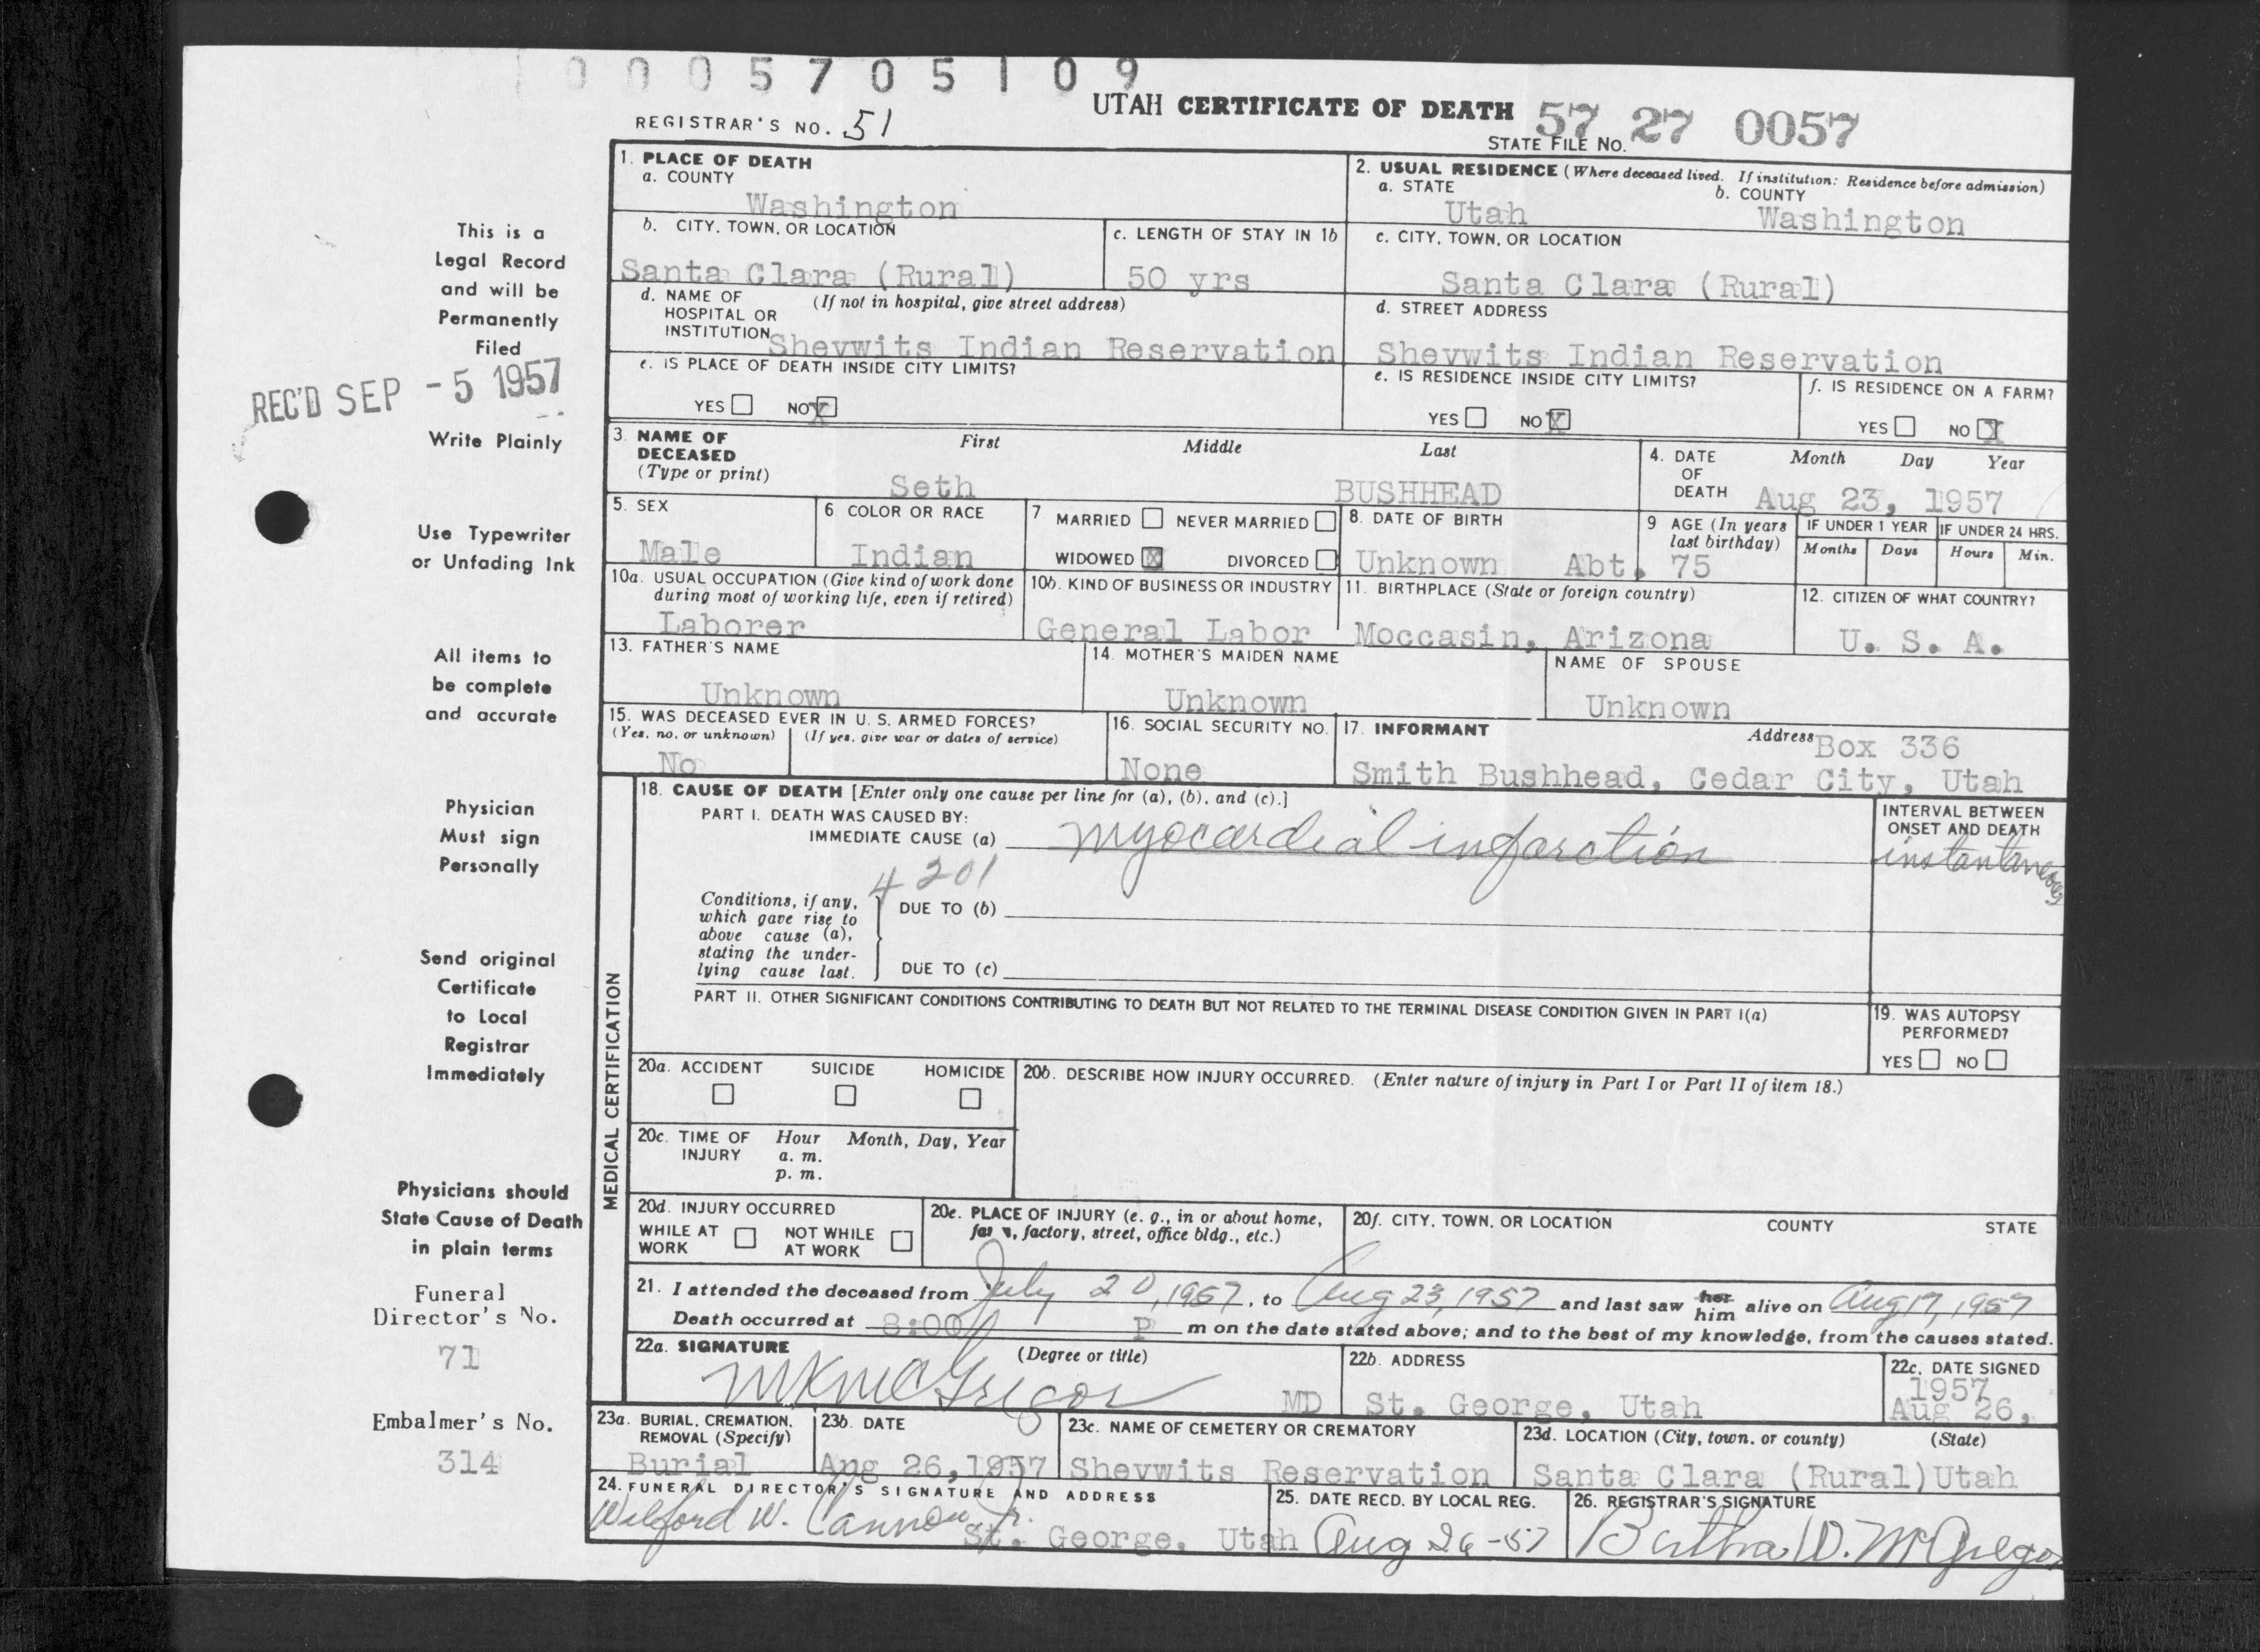 0005705109
UTAH CERTIFICATE OF DEATH
REGISTRAR'S NO. 51
STATE FILE NO. 57 27 0057
This is a
Legal Record
and will be
Permanently
Filed
REC'D SEP -5 1957
Write Plainly
Use Typewriter
or Unfading Ink
All items to
be complete
and accurate
Physician
Must sign
Personally
Send original
Certificate
to Local
Registrar
Immediately
Physicians should
State Cause of Death
in plain terms
Funeral
Director's No.
71
Embalmer's No.
314
1. PLACE OF DEATH
a. COUNTY
Washington
2. USUAL RESIDENCE (Where deceased lived. If institution: Residence before admission)
a. STATE b. COUNTY
Utah Washington
b. CITY, TOWN, OR LOCATION
Santa Clara (Rural)
c. LENGTH OF STAY IN 1b
50 yrs
c. CITY, TOWN, OR LOCATION
Santa Clara (Rural)
d. NAME OF (If not in hospital, give street address)
HOSPITAL OR
INSTITUTION Shevwits Indian Reservation
d. STREET ADDRESS
Shevwits Indian Reservation
e. IS PLACE OF DEATH INSIDE CITY LIMITS?
YES NO X
e. IS RESIDENCE INSIDE CITY LIMITS?
YES NO X
f. IS RESIDENCE ON A FARM?
YES NO X
3. NAME OF DECEASED First Middle Last
(Type or print)
Seth BUSHHEAD
4. DATE OF DEATH Month Day Year
Aug 23, 1957
5. SEX
Male
6. COLOR OR RACE
Indian
7 MARRIED NEVER MARRIED
WIDOWED X DIVORCED
8. DATE OF BIRTH
Unknown
9 AGE (In years last birthday)
Abt. 75
IF UNDER 1 YEAR IF UNDER 24 HRS.
Months Days Hours Min.
10a. USUAL OCCUPATION (Give kind of work done
during most of working life, even if retired)
Laborer
10b. KIND OF BUSINESS OR INDUSTRY
General Labor
11. BIRTHPLACE (State or foreign country)
Moccasin, Arizona
12. CITIZEN OF WHAT COUNTRY?
U. S. A.
13. FATHER'S NAME
Unknown
14. MOTHER'S MAIDEN NAME
Unknown
NAME OF SPOUSE
Unknown
15. WAS DECEASED EVER IN U. S. ARMED FORCES?
(Yes, no, or unknown) (If yes, give war or dates of service)
No
16. SOCIAL SECURITY NO.
None
17. INFORMANT Address Box 336
Smith Bushhead, Cedar City, Utah
MEDICAL CERTIFICATION
18. CAUSE OF DEATH [Enter only one cause per line for (a), (b), and (c).]
PART I. DEATH WAS CAUSED BY:
IMMEDIATE CAUSE (a) myocardial infarction
INTERVAL BETWEEN
ONSET AND DEATH
instantaneous
4201
Conditions, if any,
which gave rise to
above cause (a),
stating the under-
lying cause last.
DUE TO (b)
DUE TO (c)
PART II. OTHER SIGNIFICANT CONDITIONS CONTRIBUTING TO DEATH BUT NOT RELATED TO THE TERMINAL DISEASE CONDITION GIVEN IN PART I(a)
19. WAS AUTOPSY
PERFORMED?
YES NO
20a. ACCIDENT SUICIDE HOMICIDE
20b. DESCRIBE HOW INJURY OCCURRED. (Enter nature of injury in Part I or Part II of item 18.)
20c. TIME OF INJURY Hour Month, Day, Year
a. m.
p. m.
20d. INJURY OCCURRED
WHILE AT WORK NOT WHILE AT WORK
20e. PLACE OF INJURY (e. g., in or about home,
farm, factory, street, office bldg., etc.)
20f. CITY, TOWN, OR LOCATION COUNTY STATE
21. I attended the deceased from July 20, 1957, to Aug 23, 1957 and last saw her him alive on Aug 17, 1957
Death occurred at 8:00 P m on the date stated above; and to the best of my knowledge, from the causes stated.
22a. SIGNATURE (Degree or title)
MKMcGregor MD
22b. ADDRESS
St. George, Utah
22c. DATE SIGNED
1957
Aug 26,
23a. BURIAL, CREMATION,
REMOVAL (Specify)
Burial
23b. DATE
Aug 26, 1957
23c. NAME OF CEMETERY OR CREMATORY
Shevwits Reservation
23d. LOCATION (City, town, or county) (State)
Santa Clara (Rural) Utah
24. FUNERAL DIRECTOR'S SIGNATURE AND ADDRESS
Wilford W. Cannon Jr.
St. George, Utah
25. DATE RECD. BY LOCAL REG.
Aug 26-57
26. REGISTRAR'S SIGNATURE
Bertha D. McGregor